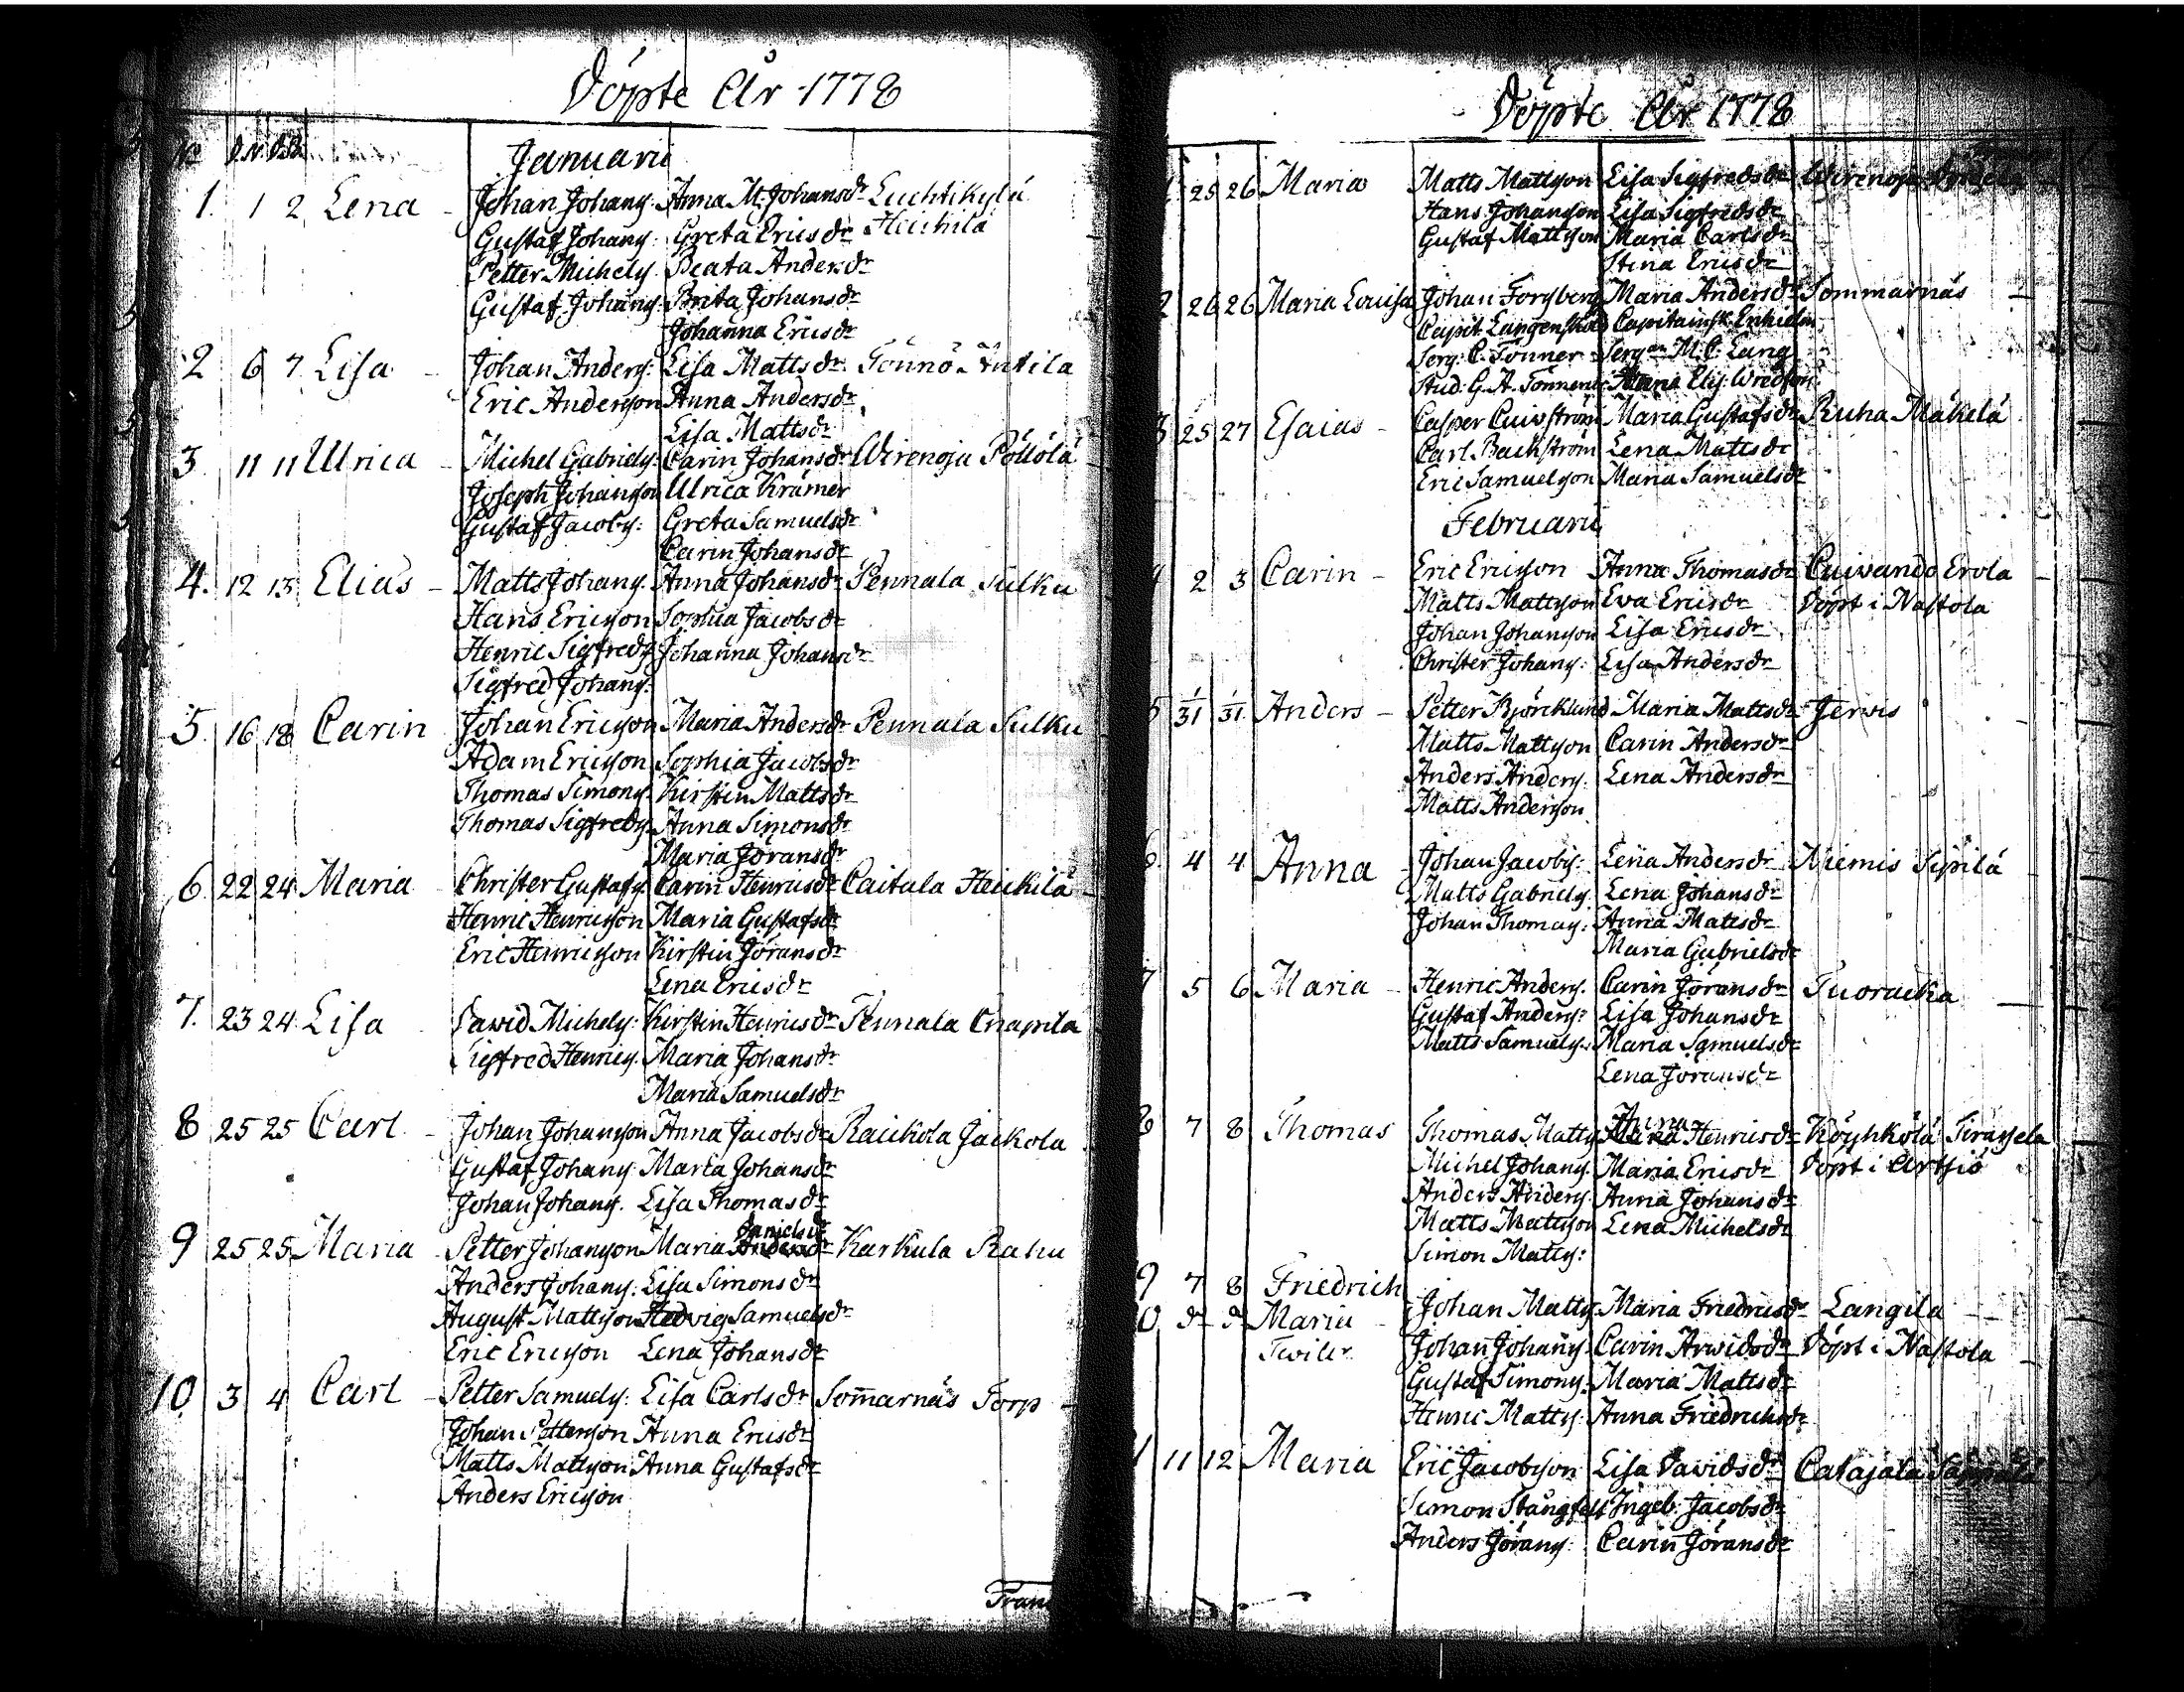 Döpte År 1778
No D.N. D.B.
Januarii
1. 1 2 Lena - Johan Johans: Anna M. Johansdr Luchtikylä
Gustaf Johans: Greta Ericsdr Heickilä
Petter Michels: Beata Andersdr
Gustaf Johans: Brita Johansdr
Johanna Ericsdr
2 6 7 Lisa - Johan Anders: Lisa Mattsdr Tönnö Anttila
Eric Andersson Anna Andersdr
Lisa Mattsdr
3. 11 11 Ulrica - Michel Gabriels: Carin Johansdr Wirenoja Pölölä
Joseph Johansson Ulrica Krämer
Gustaf Jacobs: Greta Samuelsdr
Carin Johansdr
4. 12 13 Elias - Matts Johans: Anna Johansdr Pennala Sulku
Hans Ericsson Sophia Jacobsdr
Henric Sigfreds: Johanna Johansdr
Sigfred Johans:
5. 16 18 Carin Johan Ericsson Maria Andersdr Pennala Sulku
Adam Ericsson Sophia Jacobsdr
Thomas Simons: Kirstin Mattsdr
Thomas Sigfreds: Anna Simonsdr
Maria Joransdr
6. 22 24 Maria Christer Gustafs: Carin Henricsdr Caitala Heickilä
Henric Henricsson Maria Gustafsdr
Eric Henricsson Kirstin Joransdr
Lena Ericsdr
7. 23 24 Lisa David Michels: Kirstin Henricsdr Pennala Cnapila
Sigfred Henrics: Maria Johansdr
Maria Samuelsdr
8 25 25 Carl - Johan Johansson Anna Jacobsdr Raickola Jackola
Gustaf Johans: Maria Johansdr
Johan Johans. Lisa Thomasdr
Danielsdr
9 25 25 Maria - Petter Johansson Maria Andersdr Karkula Rahu
Anders Johans: Lisa Simonsdr
August Mattsson Hedvig Samuelsdr
Eric Ericsson Lena Johansdr
10. 3 4 Carl - Petter Samuels: Lisa Carlsdr Som̄arnäs Torp -
Johan Pettersson Anna Ericsdr
Matts Mattsson Anna Gustafsdr
Anders Ericsson
Döpte År 1778
25 26 Maria Matts Mattsson Lisa Sigfredsdr Wirenoja
Hans Johansson Lisa Sigfredsdr
Gustaf Mattsson Maria Carlsdr
Stina Ericsdr
2 26 26 Maria Louisa Johan Forsberg Maria Andersdr Sommarnäs
Capit. Langenskold Capitainsk.
Serg: C. Tönner M. C. Lang
Stud: G. A. Maria Elis:
3 25 27 Esaias - Casper Maria Gustafsdr Ruha Mäkelä
Carl Backström Lena Mattsdr
Eric Samuelsson Maria Samuelsdr
Februarii
4 2 3 Carin - Eric Ericsson Anna Thomasdr Cuivando Erola
Matts Mattsson Eva Ericsdr Döpt i Nastola
Johan Johansson Lisa Ericsdr
Christer Johans: Lisa Andersdr
5 1/31 1/31 Anders - Petter Björcklund Maria Mattsdr Jervis
Matts Mattsson Carin Andersdr
Anders Anders: Lena Andersdr
Matts Andersson
6. 4 4 Anna Johan Jacobs: Lena Andersdr Niemis Sipilä
Matts Gabriels: Lena Johansdr
Johan Thomas: Anna Mattsdr
Maria Gabrielsdr
7 5 6 Maria - Henric Anders: Carin Joransdr Tuoracka
Gustaf Anders: Lisa Johansdr
Matts Samuels: Maria Samuelsdr
Lena Joransdr
Anna
8 7 8 Thomas Thomas Matts: Henricsdr Köyhkölä
Michel Johans: Maria Ericsdr Döpt i Artsiö
Anders Anders: Anna Johansdr
Matts Mattsson Lena Michelsdr
Simon Matts:
9 7 8 Friedrich
0 d- d- Maria - Johan Matts: Maria Friedricsdr Langila
Twiller Johan Johans: Carin Arwidsdr Döpt i Nastola
Gustaf Simons: Maria Mattsdr
Henric Matts: Anna Friedrichsdr
1 11 12 Maria Eric Jacobsson Lisa Davidsdr Catajala
Simon Stångfelt Ingeb. Jacobsdr
Anders Jörans: Carin Jöransdr